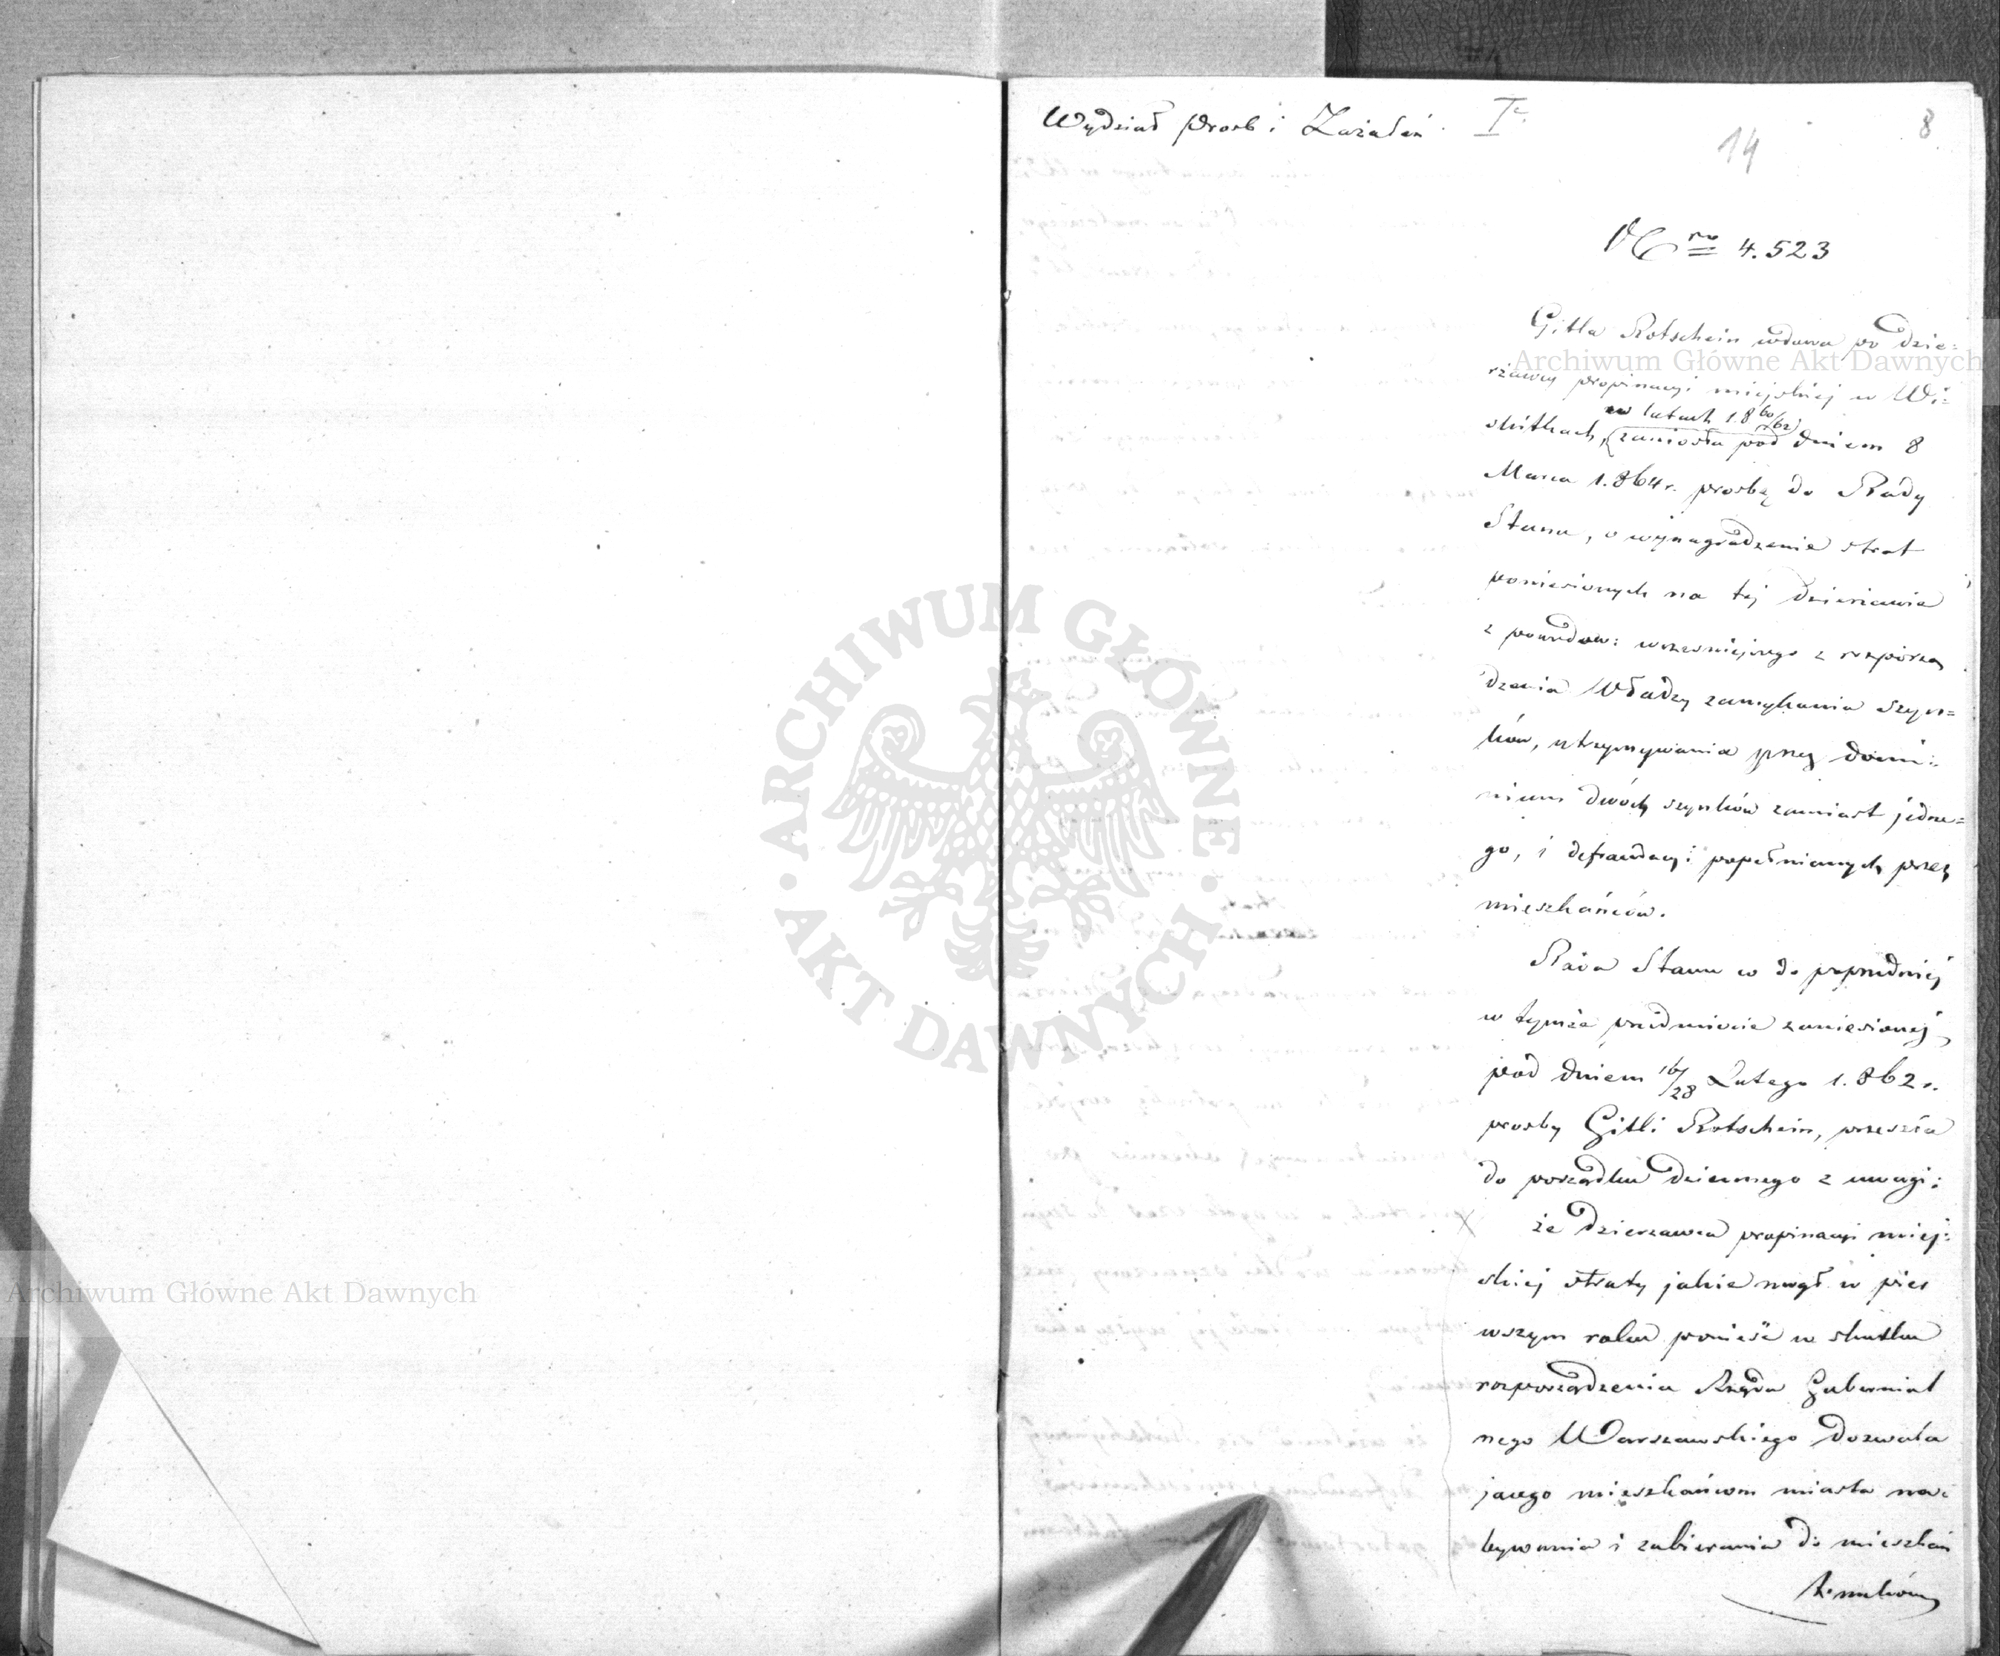 Wydział Prosb i Zażaleń.
I
14
8
Nro 4.523
Gitla Rotschein wdowa po dzie=
rżawcy propinacyi miejskiej w Wi=
skitkach, w latach 1.860/62 zaniosła pod dniem 8
Marca 1.864 r. prosbę do Rady
Stanu, o wynagrodzenie strat
poniesionych na tej dzierżawie
z powodow: wcześniejszego z rozporzą
dzenia Władzy zamykania szyn=
ków, utrzymywania przez domi=
nium dwóch szynków zamiast jedne=
go, i defraudacyi popełnianych przez
mieszkańców.
Rada Stanu co do poprzedniej
w tymże przedmiocie zaniesionej
pod dniem 16/28 Lutego 1.862 r.
prosby Gitli Rotschein, przeszła
do porządku dziennego z uwagi:
że dzierzawca propinacyi miej=
skiej straty jakie mógł w pier
wszym roku ponieść w skutku
rozporządzenia Rządu Gubernial
nego Warszawskiego dozwala
jącego mieszkańcom miasta na=
bywania i zabierania do mieszkań
trunków
Archiwum Główne Akt Dawnych
Archiwum Główne Akt Dawnych
ARCHIWUM GŁÓWNE
AKT DAWNYCH